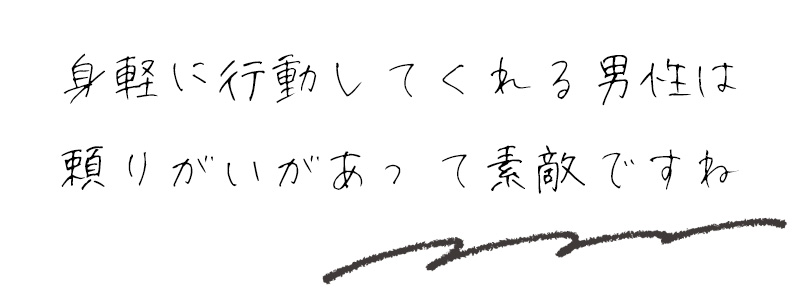 身軽に行動してくれる男性は
頼りがいがあって素敵ですね